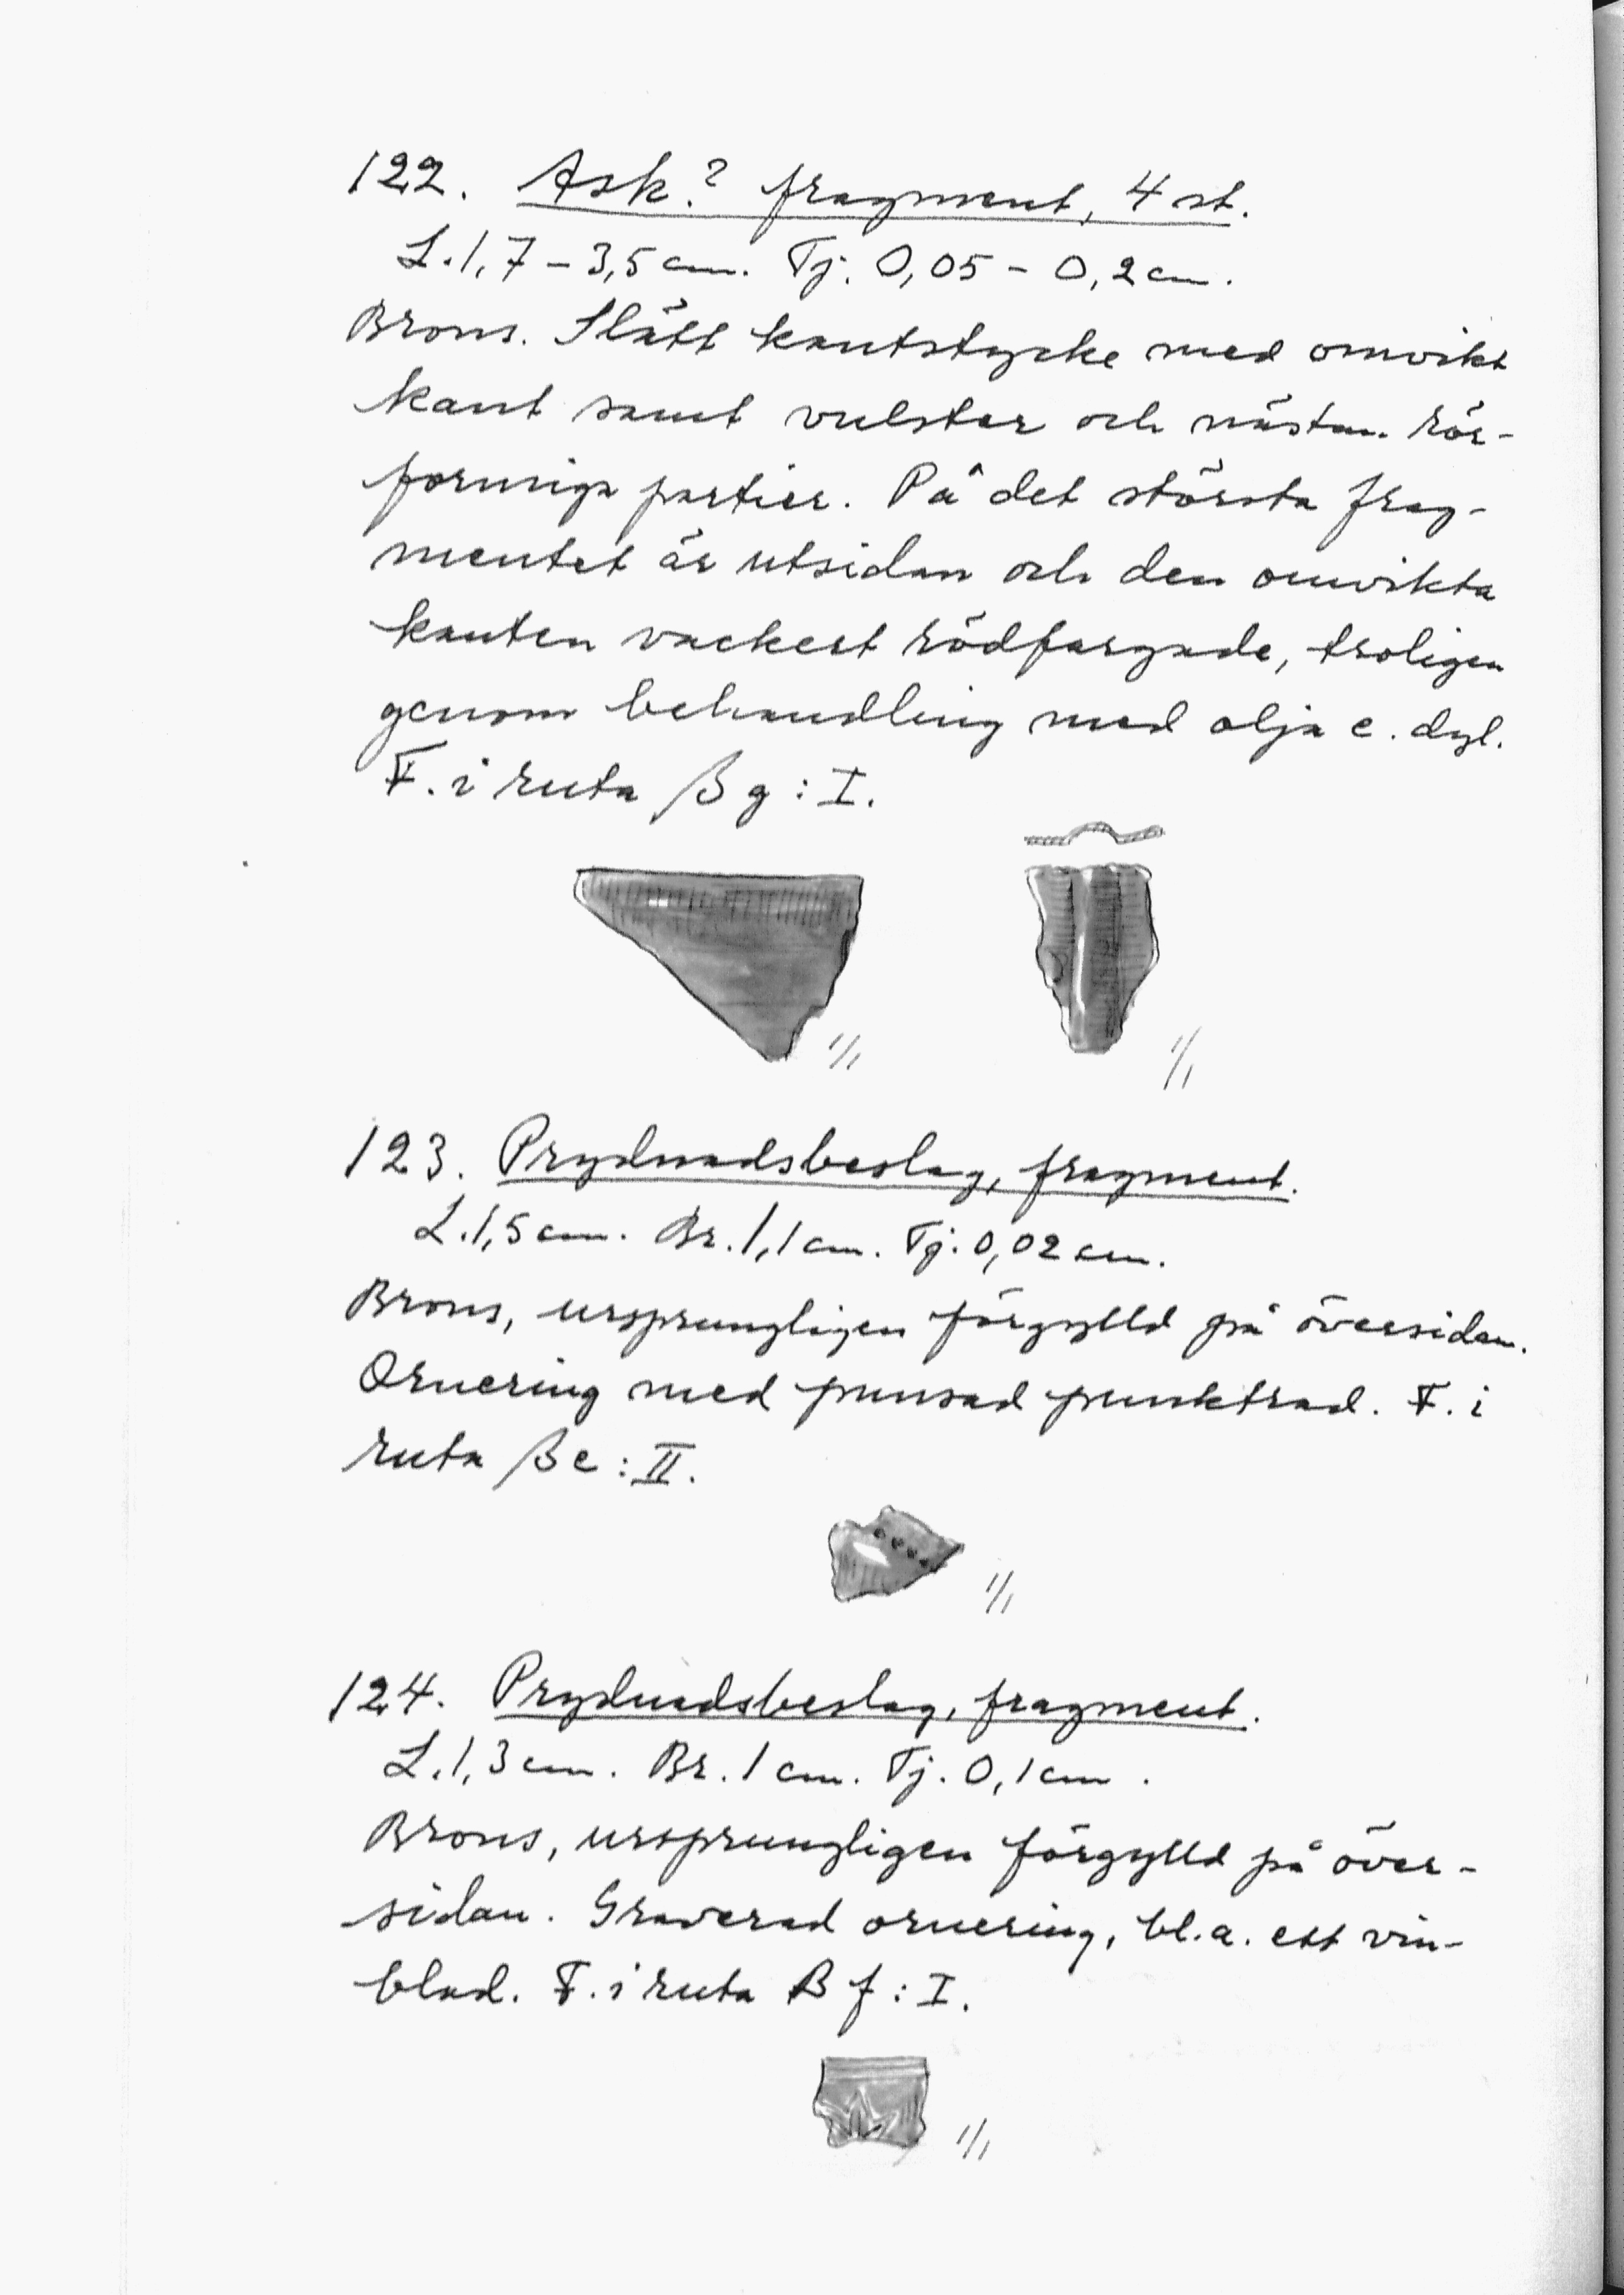 122. Ask? fragment, 4 st.
L. 1,7 – 3,5 cm. Tj. 0,05 – 0,2 cm.
Brons. Slätt kantstycke med omvikt
kant samt vulster och nästan rör-
formiga partier. På det största frag-
mentet är utsidan och den omvikta
kanten vackert rödfärgade, troligen
genom behandling med olja e. dyl.
F. i ruta β g : I.
1/1
1/1
123. Prydnadsbeslag, fragment.
L. 1,5 cm. Br. 1,1 cm. Tj. 0,02 cm.
Brons, ursprungligen förgylld på översidan.
Ornering med punsad punktrad. F. i
ruta β e : II.
1/1
124. Prydnadsbeslag, fragment.
L. 1,3 cm. Br. 1 cm. Tj. 0,1 cm.
Brons, ursprungligen förgylld på över-
sidan. Graverad ornering, bl.a. ett vin-
blad. F. i ruta β f : I.
1/1